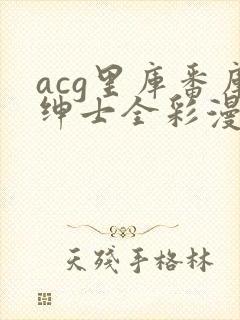 acg里库番库
绅士全彩漫
天残手格林